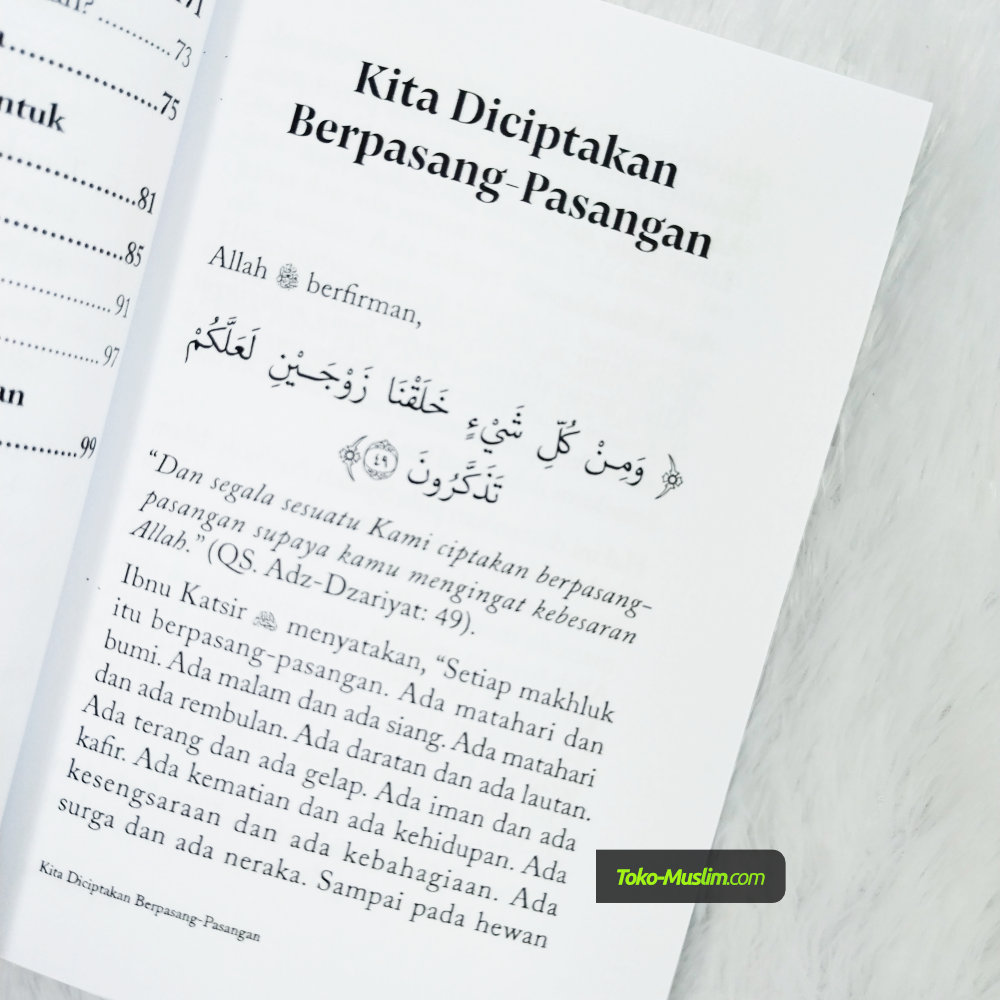 71
73
75
ntuk
81
85
91
97
an
99
Kita Diciptakan
Berpasang-Pasangan
Allah ﷻ berfirman,
﴿ وَمِنْ كُلِّ شَيْءٍ خَلَقْنَا زَوْجَيْنِ لَعَلَّكُمْ
تَذَكَّرُونَ ٤٩ ﴾
“Dan segala sesuatu Kami ciptakan berpasang-
pasangan supaya kamu mengingat kebesaran
Allah.” (QS. Adz-Dzariyat: 49).
Ibnu Katsir menyatakan, “Setiap makhluk
itu berpasang-pasangan. Ada matahari dan
bumi. Ada malam dan ada siang. Ada matahari
dan ada rembulan. Ada daratan dan ada lautan.
Ada terang dan ada gelap. Ada iman dan ada
kafir. Ada kematian dan ada kehidupan. Ada
kesengsaraan dan ada kebahagiaan. Ada
surga dan ada neraka. Sampai pada hewan
Kita Diciptakan Berpasang-Pasangan
Toko-Muslim.com